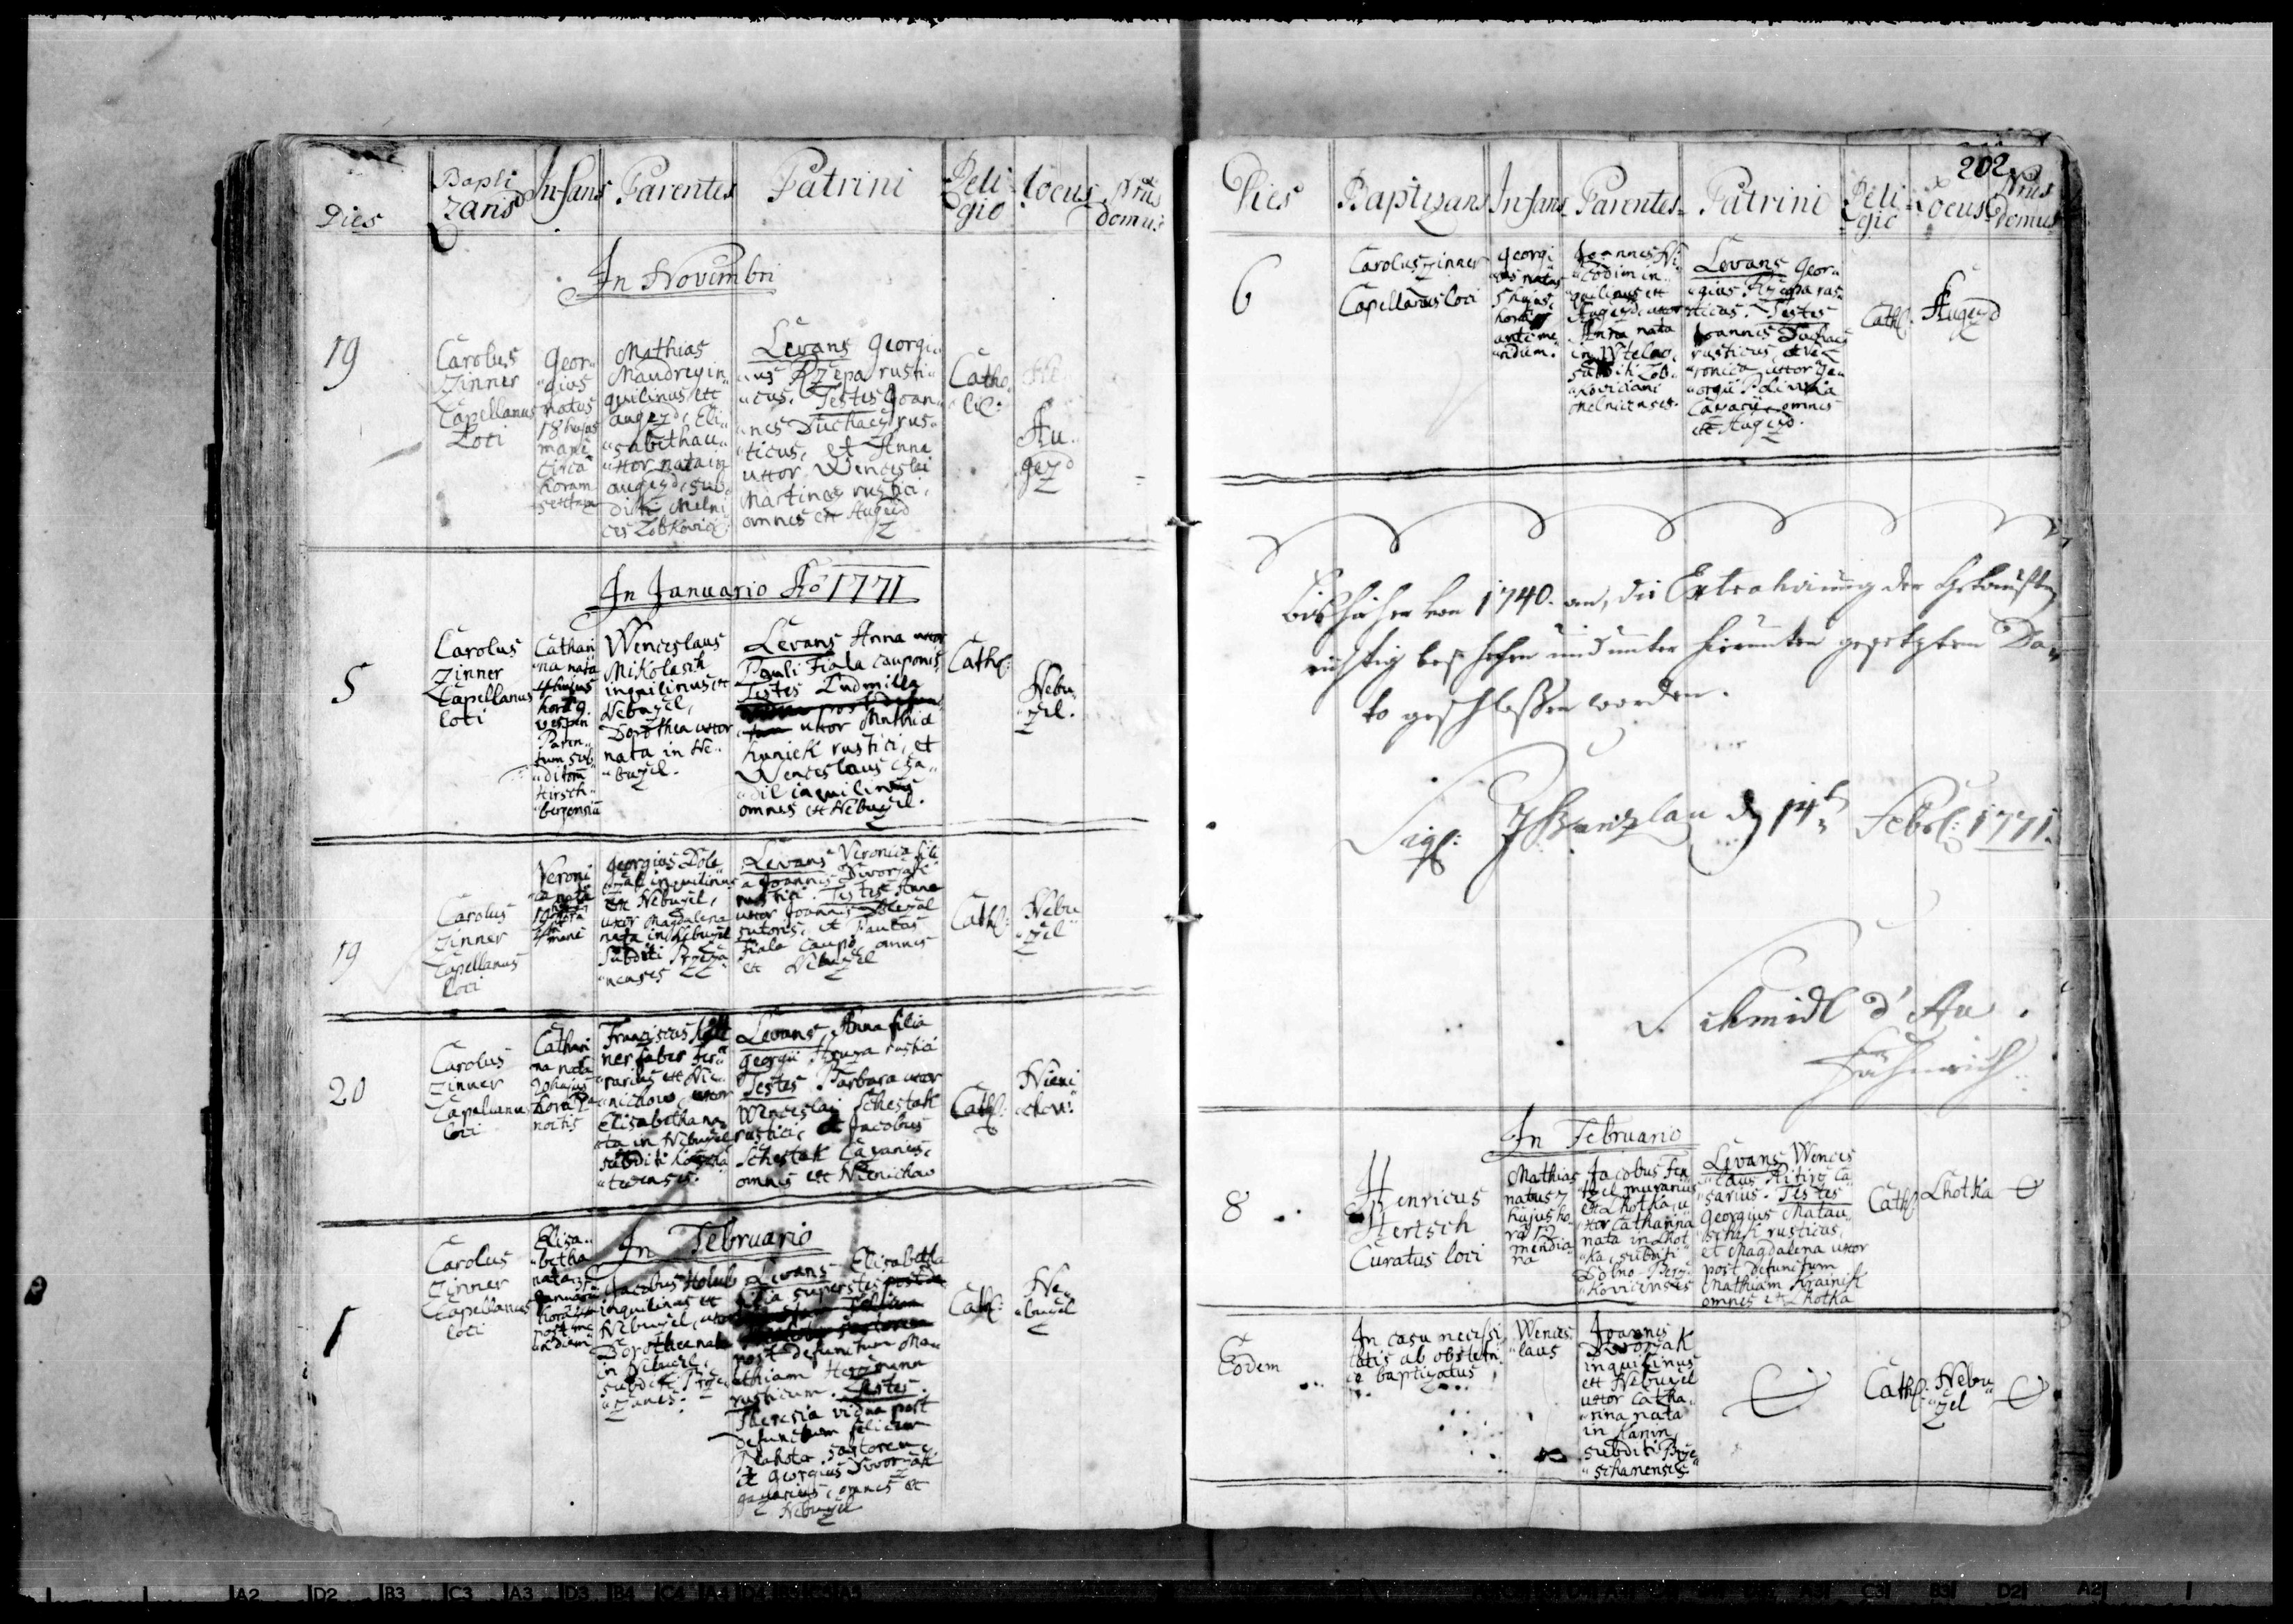 Dies
Bapti
zans
Infans
Parentes
Patrini
Reli
gio
locus
Nrus
domus
In Novembri
19
Carolus
Zinner
Capellanus
Loci
Geor„
„gius
natus
18 hujus
mane
circa
horam
sextam
Mathias
Maudreyin„
quilinus ex
augezd, Eli„
„sabetha u„
„xor nata in
augezd, sub„
diti Melni
ces Lobkovic:
Levans Georgi„
„us Rzepa rusti„
„cus. Testes Joan„
„nes Duchacz rus„
„ticus, et Anna
uxor Wenceslai
Martinec rustici,
omnes ex Augezd
Catho
lic:
Au„
gezd
In Januario Ao 1771
5
Carolus
Zinner
Capellanus
loci
Cathari
„na nata
4 hujus
hora 9.
vesperi
Paren„
tum sub„
„ditorũ
Hirsch„
„bergensiũ
Wenceslaus
Mikolasch
inquilinus ex
Nebuzel,
Dorothea uxor
nata in Ne„
„buzel.
Levans Anna uxor
Pauli Fiala cauponis
Testes Ludmilla
uxor Mathia
Kuniek rustici, et
Wenceslaus Cza„
„dil inquilinus
omnes ex Nebuzel.
Cath:
Nebu„
zel.
19
Carolus
Zinner
Capellanus
loci
Veroni
ca nata
19
hora
mane
Georgius Dole
zal inquilinus
ex Nebuzel,
uxor Magdalena
nata in Nebuzel
subditi Brzeza
„nenses
Levans Veronica fili
a Joannis Dworzak
rustici. Testes Anna
uxor Joannis Dolezal
sutoris, et Paulus
Fiala caupo, omnes
ex Nebuzel
Cath:
Nebu
„zel
20
Carolus
Zinner
Capellanus
loci
Cathari
na nata
20 hujus
hora 2
noctis
Franciscus
ner faber fer„
„rarius ex Nie„
„nichow, uxor
Elisabetha na„
„ta in Nebuzel
subditi
„tecenses.
Levans Anna filia
Georgii Hruza rustici
Testes Barbara uxor
Wenceslai Schestak
rustici, et Jacobus
Schestak Casarius,
omnes ex Nienichow
Cath:
Nieni
„chow.
In Februario
1
Carolus
Zinner
Capellanus
loci
Elisa„
„betha
nata 31
Januarii
hora
post me
„ridiem
Jacobus Holub
inquilinus ex
Nebuzel, uxor
Dorothea nata
in Nebuzel,
subditi Brze„
„zanes:
Levans Elisabetha
filia superstes
post defunctum Ma„
„thiam Herzmann
rusticum. Testes
Theresia vidua post
defunctum felicem
Nahota sartorem,
et Georgius Dworzak
gazarius, omnes ex
Nebuzel
Cath:
Ne„
„buzel
202
Dies
Baptizans
Infans
Parentes
Patrini
Reli
gio
Locus
Nrus
Domus
6
Carolus Zinner
Capellanus loci
Georgi
us natus
5 hujus,
hora
ante me„
„ridiem.
Joannes Ni
„codim in„
„quilinus ex
Augezd, uxor
Anna nata
in Wtelno,
subditi Lob„
„koviciani
Melnicenses.
Levans Geor„
„gius Rzepa rus„
„ticus. Testes
Joannes Duchacz
rusticus, et Ve„
„ronica uxor Ge„
„orgii Poliwka
Casarii, omnes
ex Augezd.
Cath:
Augezd
Bishieher von 1740. an, die Extrahirung der Getauften
richtig beschehen und unter hierunten gesetztem Da„
to geschlossen worden.
Sigl: Jungbunzlau d. 14t Febrl: 1771.
Schmidl d'Au.
Fähnrich.
In Februario
8
Henricus
Hertsch
Curatus loci
Mathias
natus 7
hujus ho„
ra 12
meridia
na
Jacobus Fen„
tzel murarius
ex Lhotka, u„
„xor Catharina
nata in Lhot„
„ka, subditi
Dolno Berz„
„kovicenses
Levans Wences
„laus Ritirz Ca„
„sarius. Testes
Georgius Matau„
„schek rusticus,
et Magdalena uxor
post defunctum
Mathiam Krainik
omnes ex Lhotka
Cath:
Lhotka
Eodem
In casu necessi
tatis ab obstetri
ce baptizatus
Wences„
„laus
Joannes
Dworzak
inquilinus
ex Nebuzel
uxor Catha„
„rina nata
in Kanin,
subditi Brze„
„schanenses
Cath:
Nebu„
„zel